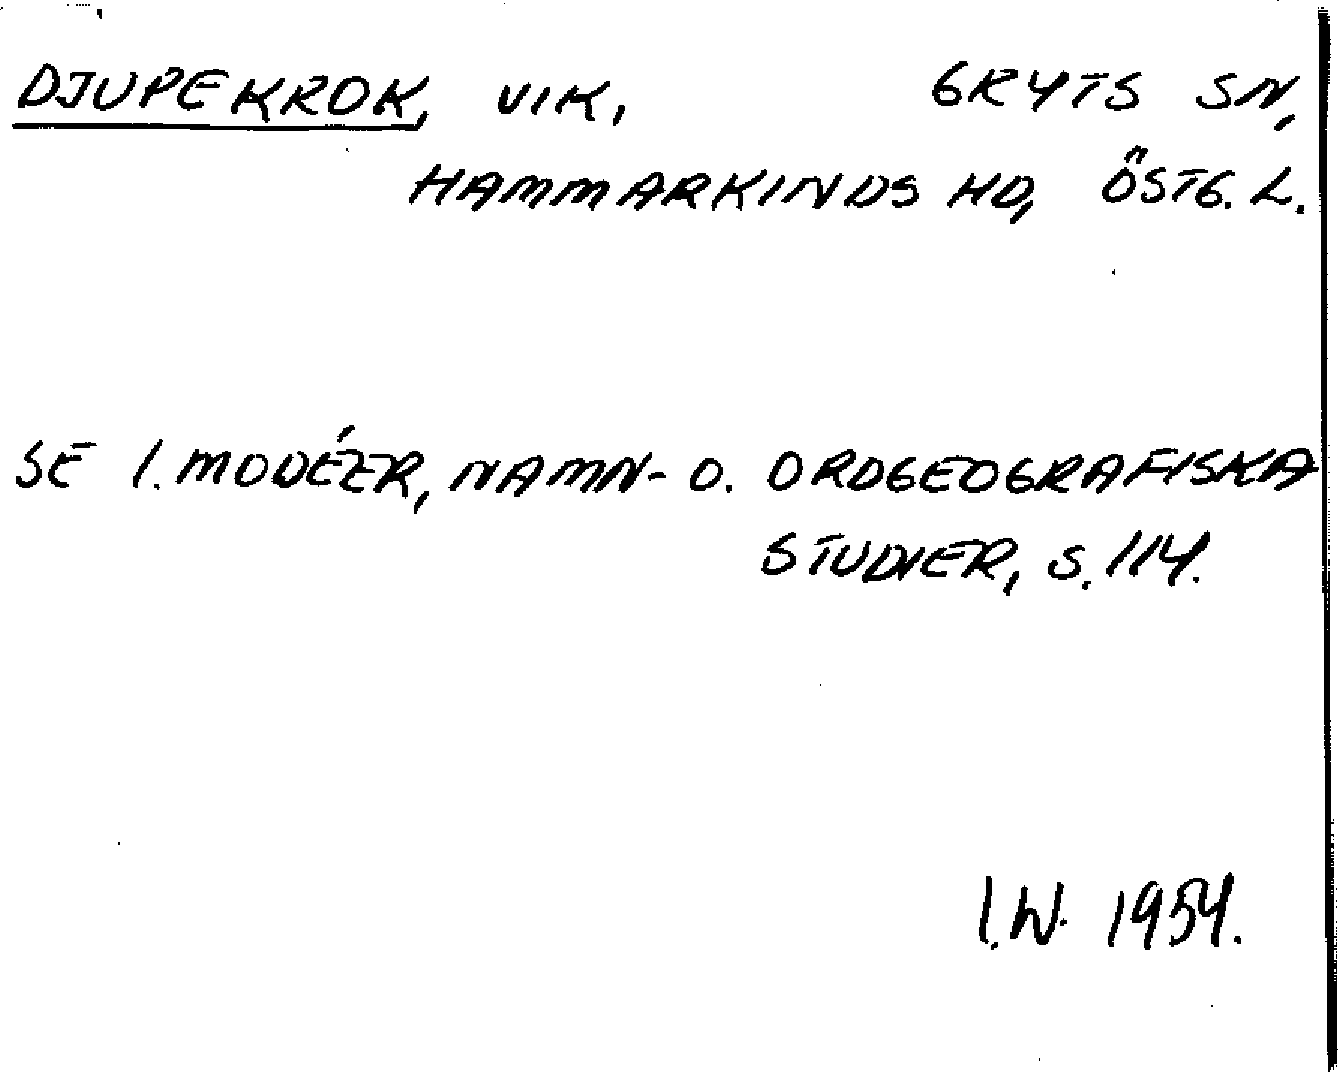 DJUPEKROK, VIK, GRYTS SN,
HAMMARKINDS HD, ÖSTG. L.
SE I. MODÉER, NAMN- O. ORDGEOGRAFISKA
STUDIER, S. 114.
I.W. 1954.